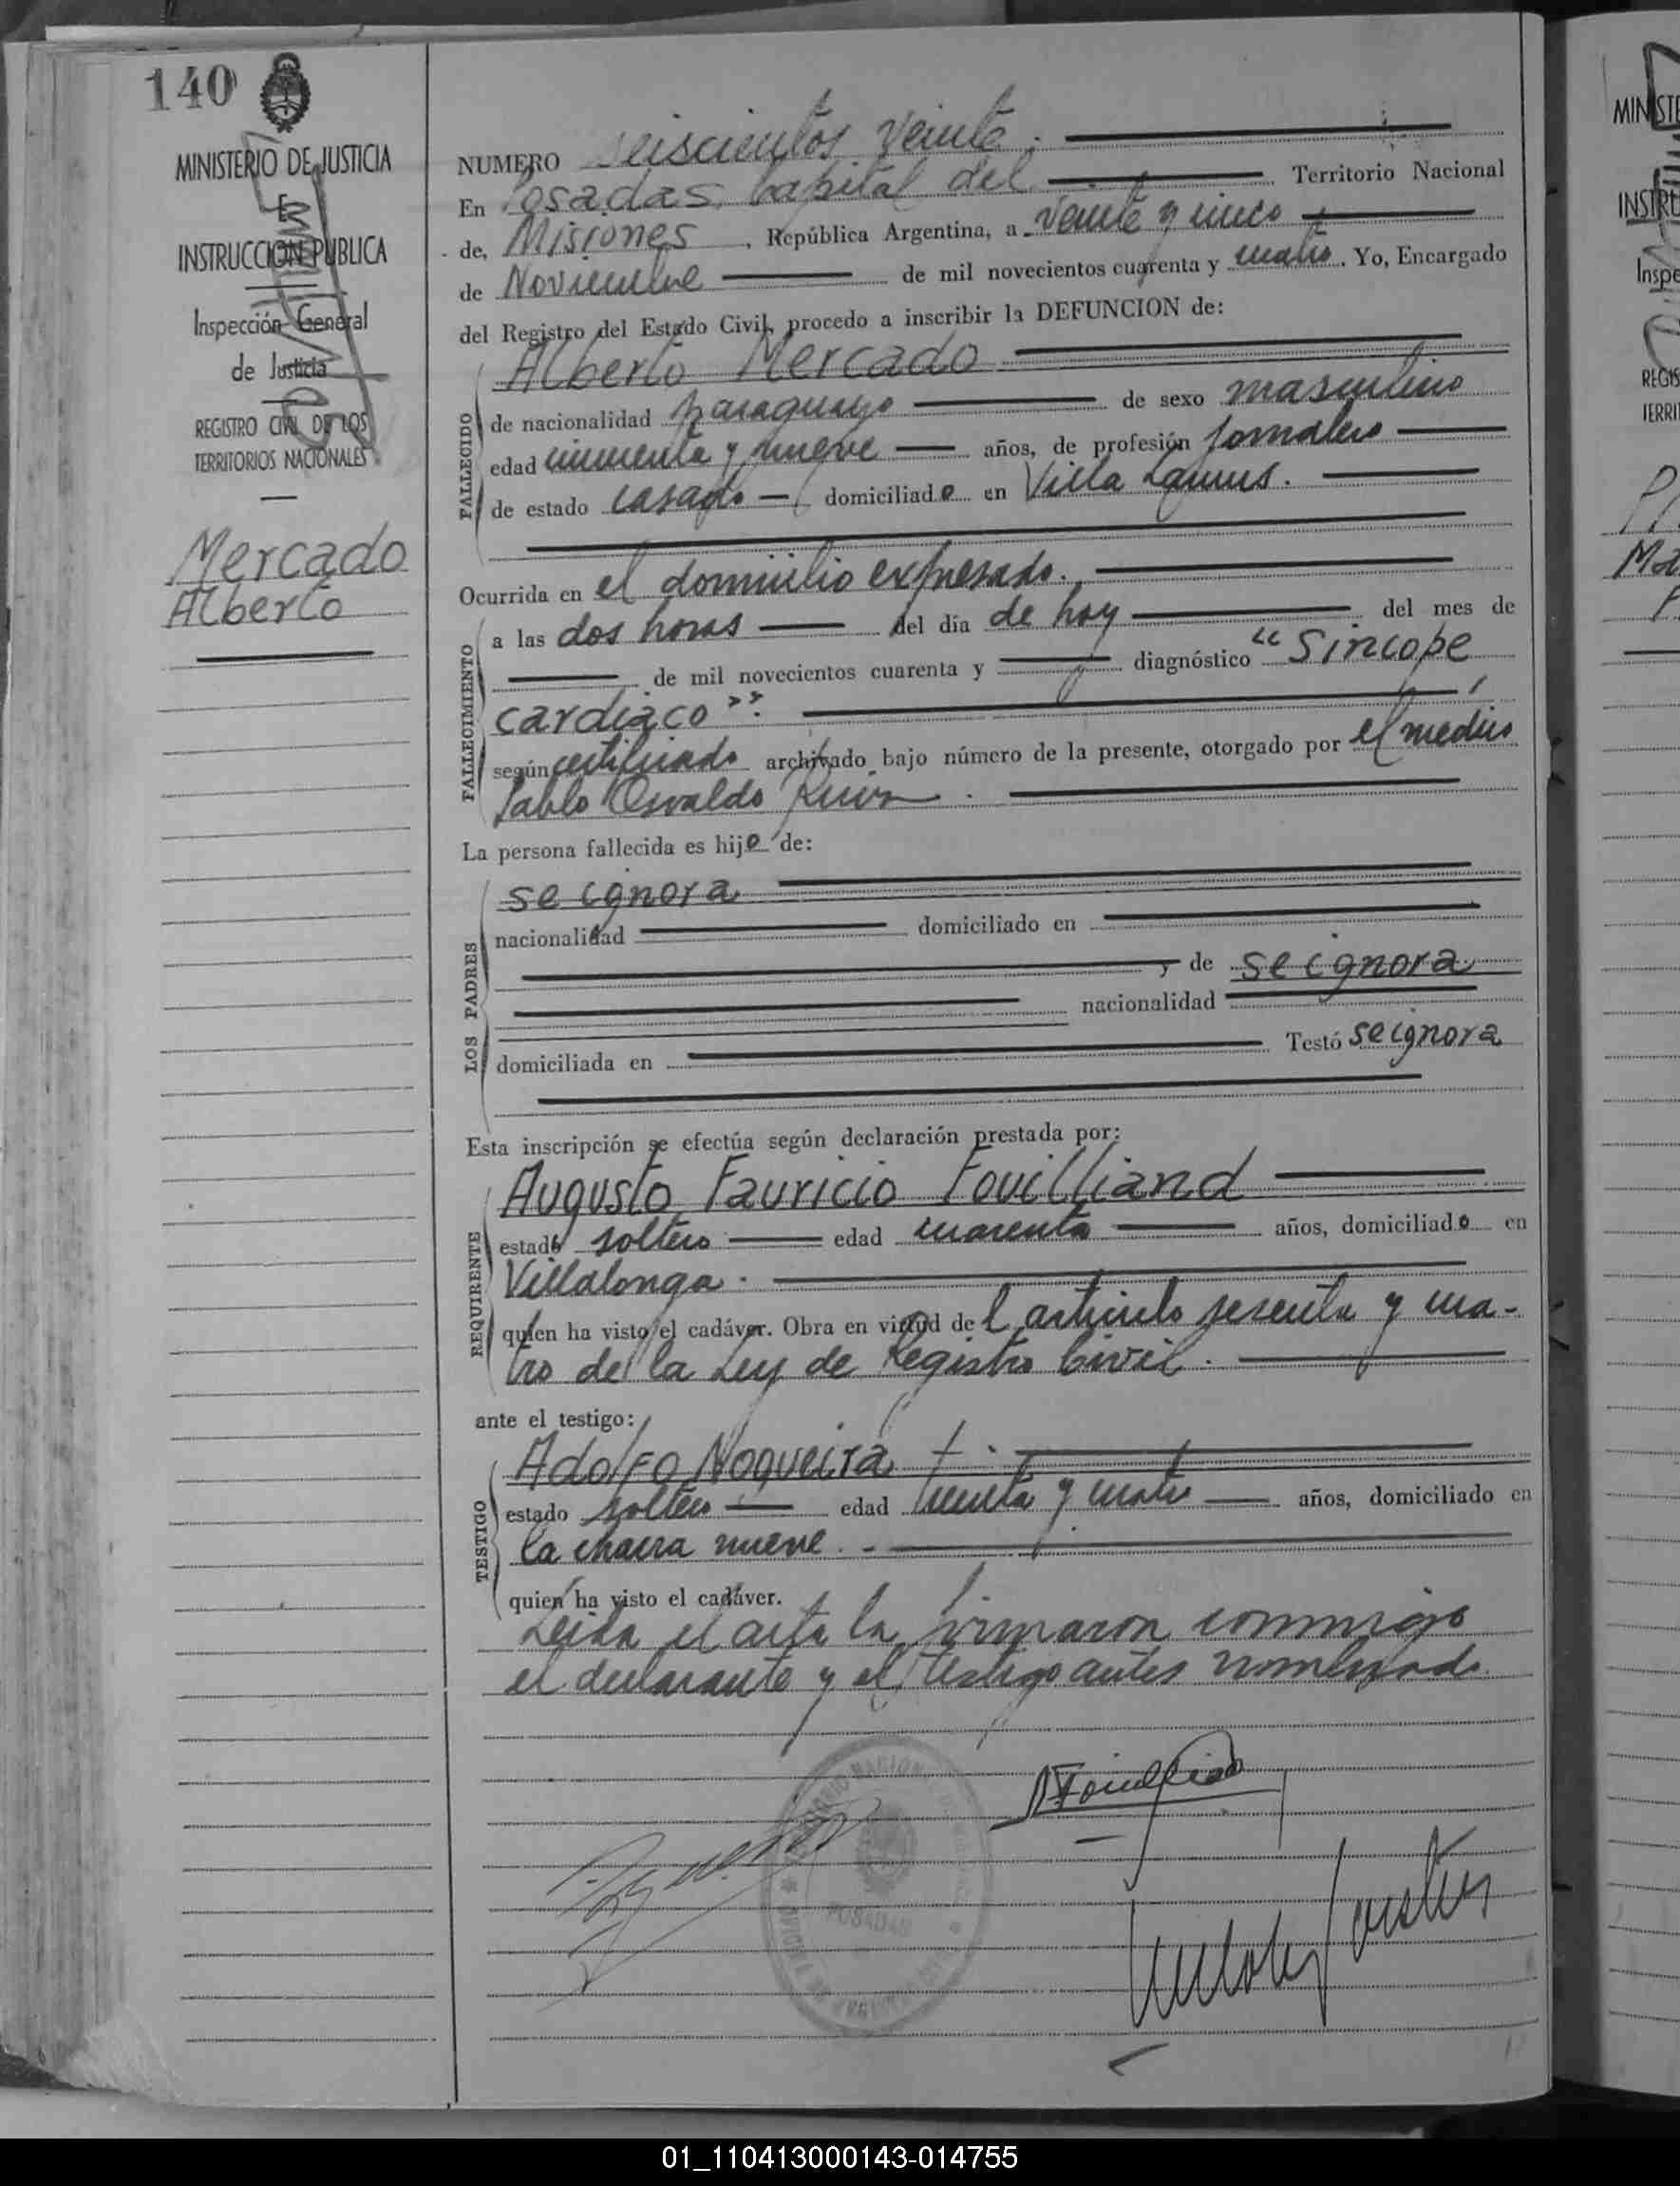 140
MINISTERIO DE JUSTICIA
E
INSTRUCCION PUBLICA
Inspección General
de Justicia
REGISTRO CIVIL DE LOS
TERRITORIOS NACIONALES
Mercado
Alberto
NUMERO seiscientos veinte.
En Posadas, Capital del Territorio Nacional
de, Misiones, República Argentina, a veinte y cinco
de Noviembre de mil novecientos cuarenta y cuatro. Yo, Encargado
del Registro del Estado Civil, procedo a inscribir la DEFUNCION de:
FALLECIDO
Alberto Mercado
de nacionalidad paraguayo de sexo masculino
edad cincuenta y nueve años, de profesión jornalero
de estado casado domiciliado en Villa Lanus.
Ocurrida en el domicilio expresado.
FALLECIMIENTO
a las dos horas del día de hoy del mes de
de mil novecientos cuarenta y diagnóstico "Sincope
cardiaco".
según certificado archivado bajo número de la presente, otorgado por el medico
Pablo Osvaldo
La persona fallecida es hijo de:
LOS PADRES
se ignora
nacionalidad domiciliado en
y de se ignora
nacionalidad
domiciliada en Testó se ignora
Esta inscripción se efectúa según declaración prestada por:
REQUIRENTE
Augusto Fauricio Fouilliand
estado soltero edad cuarenta años, domiciliado en
Villalonga.
quien ha visto el cadáver. Obra en virtud del articulo sesenta y cua-
tro de la Ley de Registro Civil.
ante el testigo:
TESTIGO
Adolfo Nogueira
estado soltero edad treinta y cuatro años, domiciliado en
la chacra nueve.
quien ha visto el cadáver.
Leida el acta la firmaron conmigo
el declarante y el testigo antes nombrado.
POSADAS
MINISTE
INSTRU
Inspe
REGIS
TERRI
01_110413000143-014755